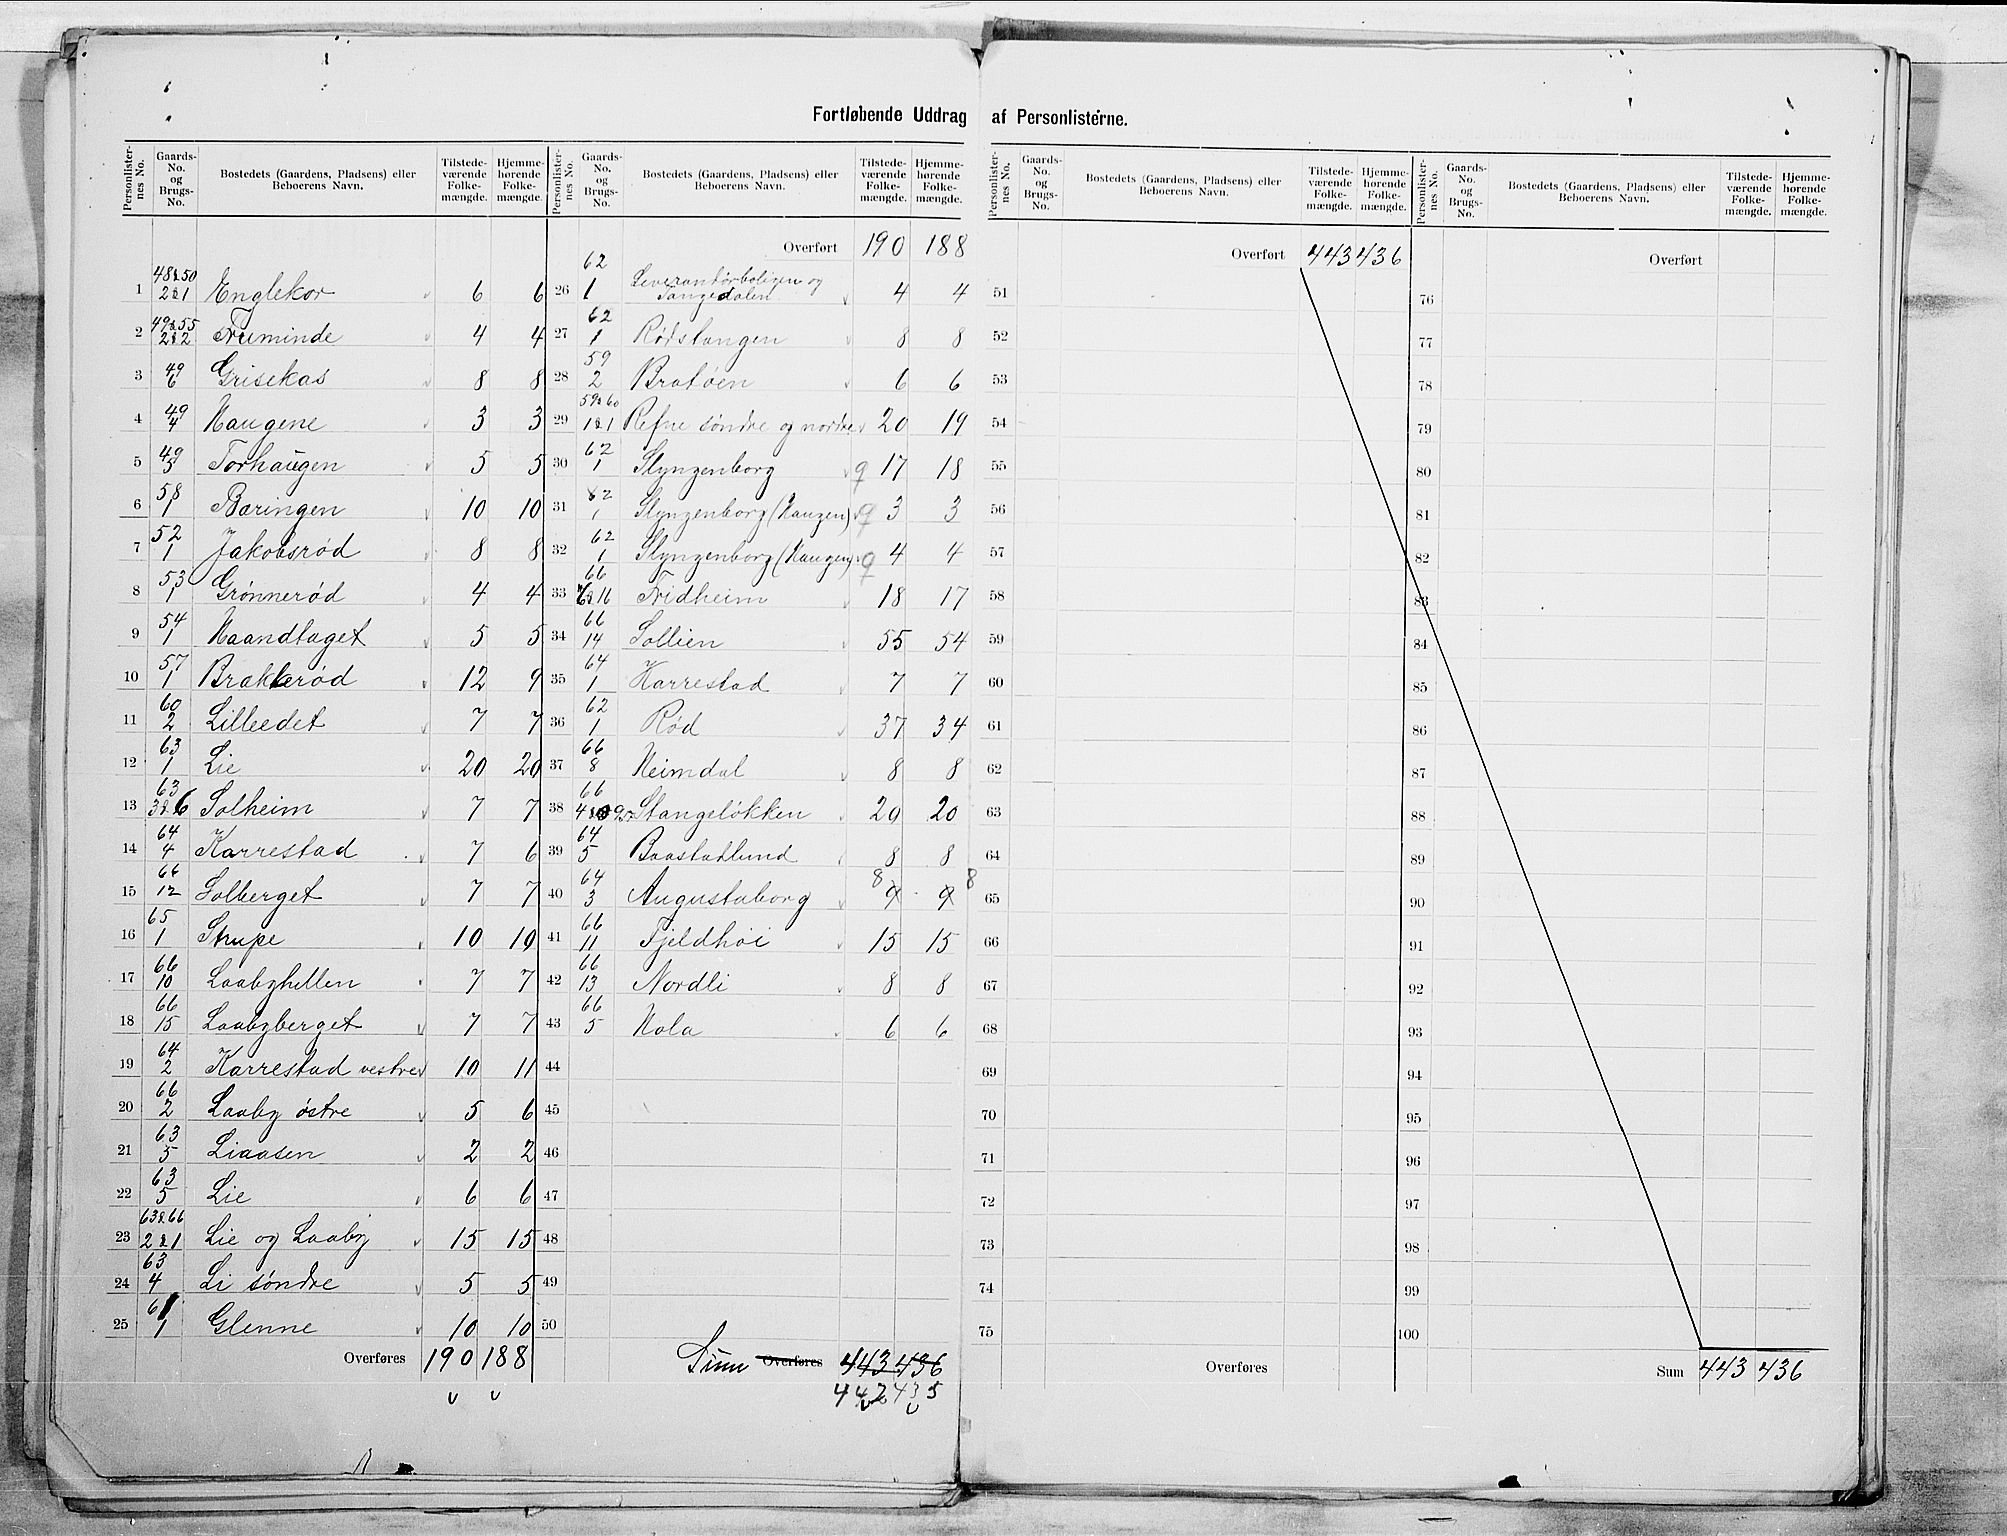 Fortløbende Uddrag af Personlisterne.
Personlister-nes No. | Gaards-No. og Brugs-No. | Bostedets (Gaardens, Pladsens) eller Beboerens Navn. | Tilstede-værende Folke-mængde. | Hjemme-hørende Folke-mængde.
1 48&50 2&1 Englekor 6 6
2 49&55 2&2 Truminde 4 4
3 49 6 Grisekas 8 8
4 49 4 Haugene 3 3
5 49 5 Torhaugen 5 5
6 58 1 Baringen 10 10
7 52 1 Jakobsrød 8 8
8 53 1 Grønnerød 4 4
9 54 1 Haandtaget 5 5
10 57 1 Braklerød 12 9
11 60 2 Lilleedet 7 7
12 63 1 Lie 20 20
13 63 3&6 Solheim 7 7
14 64 4 Karrestad 7 6
15 66 12 Solberget 7 7
16 65 1 Strupe 10 10
17 66 10 Laabyhellen 7 7
18 66 15 Laabyberget 7 7
19 64 2 Karrestad vestre 10 11
20 66 2 Laaby østre 5 6
21 63 5 Liaasen 2 2
22 63 5 Lie 6 6
23 63&66 2&1 Lie og Laaby 15 15
24 63 4 Li søndre 5 5
25 61 1 Glenne 10 10
Overføres 190 188
Personlister-nes No. | Gaards-No. og Brugs-No. | Bostedets (Gaardens, Pladsens) eller Beboerens Navn. | Tilstede-værende Folke-mængde. | Hjemme-hørende Folke-mængde.
Overført 190 188
26 62 1 Leverantørboligen og Tangedalen 4 4
27 62 1 Rødstangen 8 8
28 59 2 Bratøen 6 6
29 59&60 1&1 Refne søndre og nordre 20 19
30 62 1 Slyngenborg 17 18
31 62 1 Slyngenborg (Haugen) 3 3
32 62 1 Slyngenborg (Haugen) 4 4
33 66 6&16 Fridheim 18 17
34 66 14 Sollien 55 54
35 64 1 Karrestad 7 7
36 62 1 Rød 37 34
37 66 8 Heimdal 8 8
38 66 Stangeløkken 20 20
39 64 5 Baastadlund 8 8
40 64 3 Augustaborg 8 9 9 8
41 66 11 Fjeldhøi 15 15
42 66 13 Nordli 8 8
43 66 5 Hola 6 6
44
45
46
47
48
49
50
Sum Overføres 443 436
442 435
Personlister-nes No. | Gaards-No. og Brugs-No. | Bostedets (Gaardens, Pladsens) eller Beboerens Navn. | Tilstede-værende Folke-mængde. | Hjemme-hørende Folke-mængde.
Overført 443 436
51
52
53
54
55
56
57
58
59
60
61
62
63
64
65
66
67
68
69
70
71
72
73
74
75
Overføres
Personlister-nes No. | Gaards-No. og Brugs-No. | Bostedets (Gaardens, Pladsens) eller Beboerens Navn. | Tilstede-værende Folke-mængde. | Hjemme-hørende Folke-mængde.
Overført
76
77
78
79
80
81
82
83
84
85
86
87
88
89
90
91
92
93
94
95
96
97
98
99
100
Sum 443 436